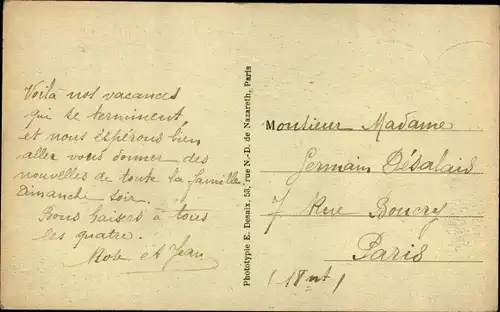 Voilà nos vacances
qui se terminent,
et nous éspérons bien
aller vous donner des
nouvelles de toute la famille
Dimanche soir.
Bons baisers à tous
les quatre.
Rose et Jean
Phototypie E. Desaix, 53, rue N.-D. de Nazareth, Paris
Monsieur Madame
Germain Désalais
7 Rue Boucry
Paris
(18nt)